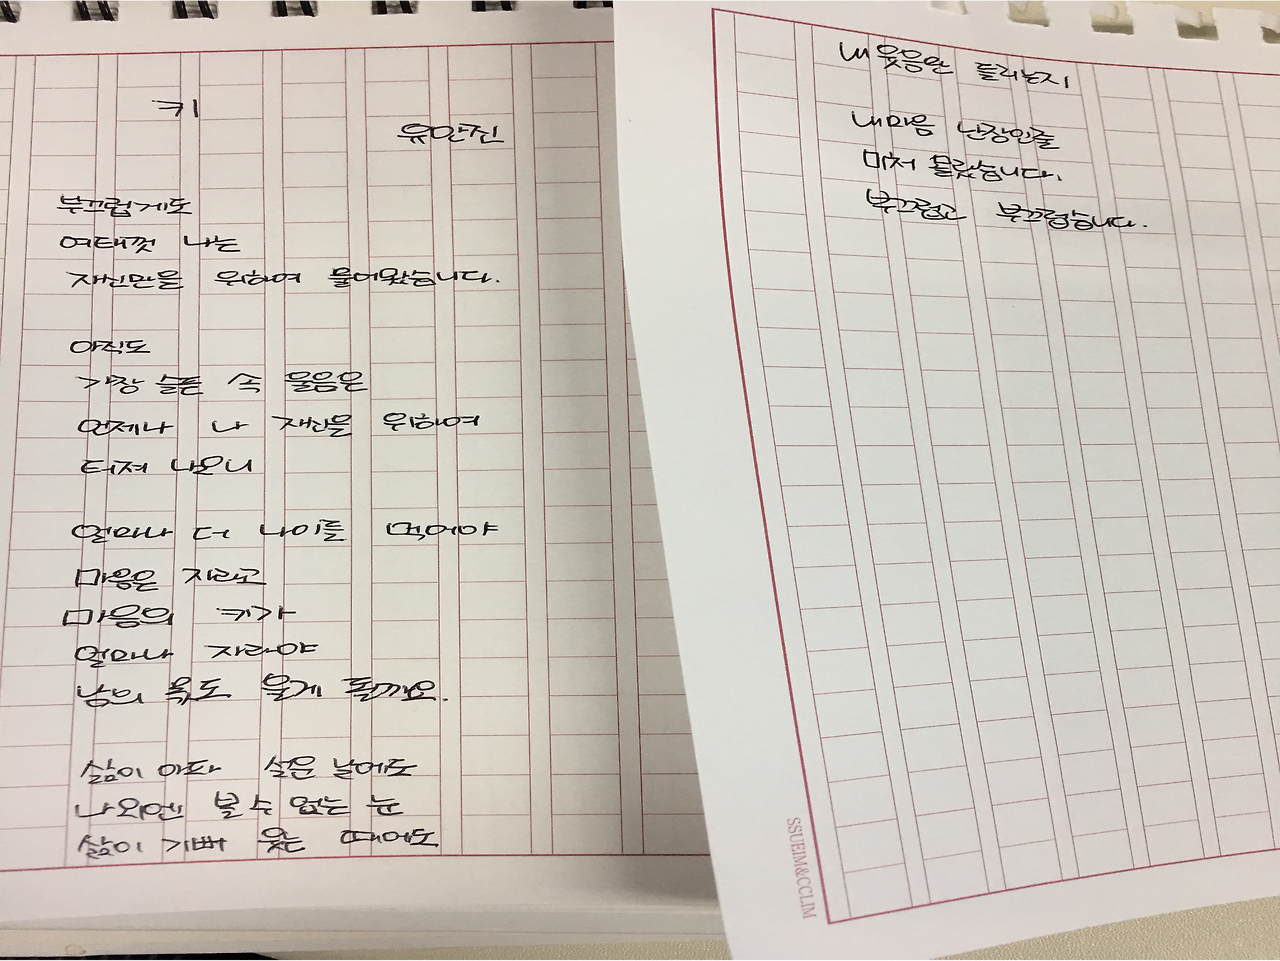 키
유안진
부끄럽게도
여태껏 나는
자신만을 위하여 울어왔습니다.
아직도
가장 슬픈 속 울음은
언제나 나 자신을 위하여
터져 나오니
얼마나 더 나이를 먹어야
마음은 자라고
마음의 키가
얼마나 자라야
남의 몫도 울게 될까요.
삶이 아파 설운 날에도
나 외엔 볼 수 없는 눈
삶이 기뻐 웃는 때에도
내 웃음만 들리는지
내 마음 난장인줄
미처 몰랐습니다.
부끄럽고 부끄럽습니다.
SSUEIM&CCLIM